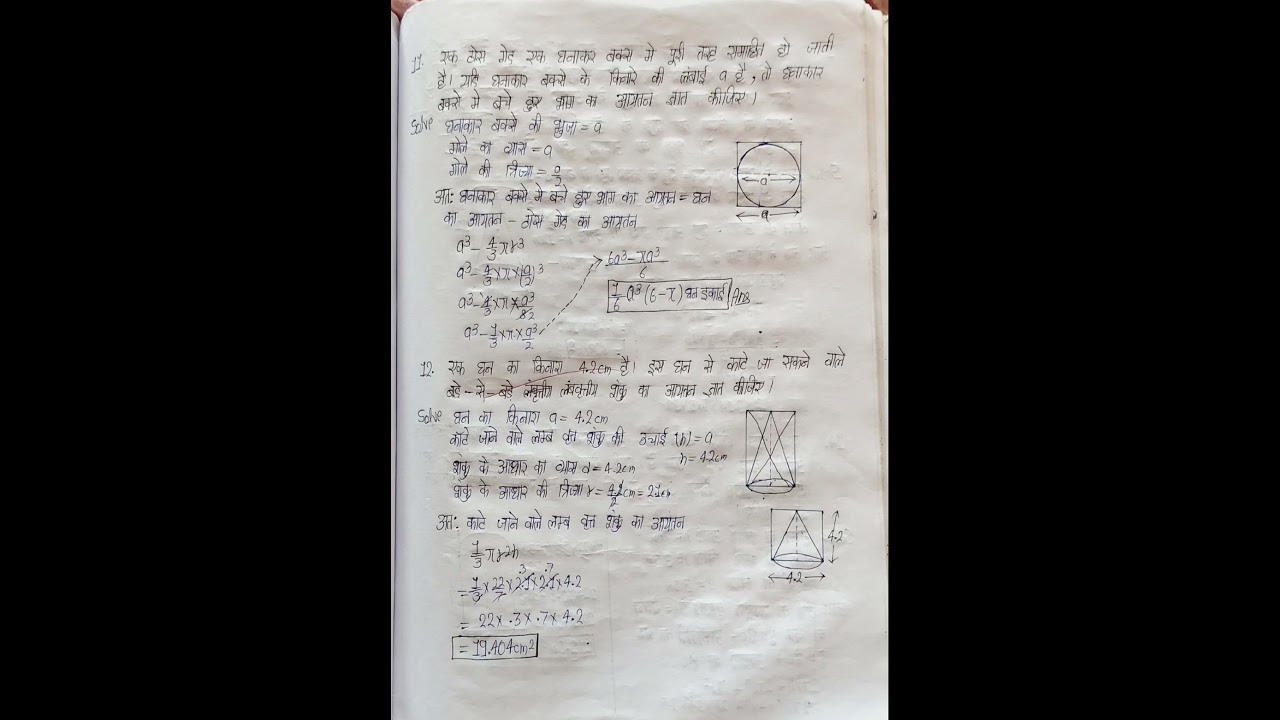 11. एक ठोस गेंद एक घनाकार बक्से मे पूरी तरह समाहित हो जाती
है। यदि घनाकार बक्से के किनारे की लंबाई a है, तो घनाकार
बक्से मे बचे हुए भाग का आयतन ज्ञात कीजिए।
Solve घनाकार बक्से की भुजा = a
गोले का व्यास = a
गोले की त्रिज्या = a/2
अत: घनाकार बक्से मे बचे हुए भाग का आयतन = घन
का आयतन - ठोस गेंद का आयतन
a³ - 4/3 πr³
a³ - 4/3 × π × (a/2)³
a³ - 4/3 × π × a³/8 2
a³ - 1/3 × π × a³/2
6a³ - πa³/6
1/6 a³ (6 - π) घन इकाई Ans
a
a
12. एक घन का किनारा 4.2cm है। इस घन से काटे जा सकने वाले
बड़े - से - बड़े लंबवृत्तीय शंकु का आयतन ज्ञात कीजिए।
Solve घन का किनारा a = 4.2cm
काटे जाने वाले लम्ब वृत्त शंकु की उचाई (h) = a
h = 4.2cm
शंकु के आधार का व्यास d = 4.2cm
शंकु के आधार की त्रिज्या r = 4.2/2 cm = 2.1cm
अत: काटे जाने वाले लम्ब वृत्त शंकु का आयतन
1/3 πr2h
= 1/3 × 22/7 × 2.1 × 2.1 × 4.2
.3 .7
= 22 × .3 × .7 × 4.2
= 19.404cm2
4.2
4.2